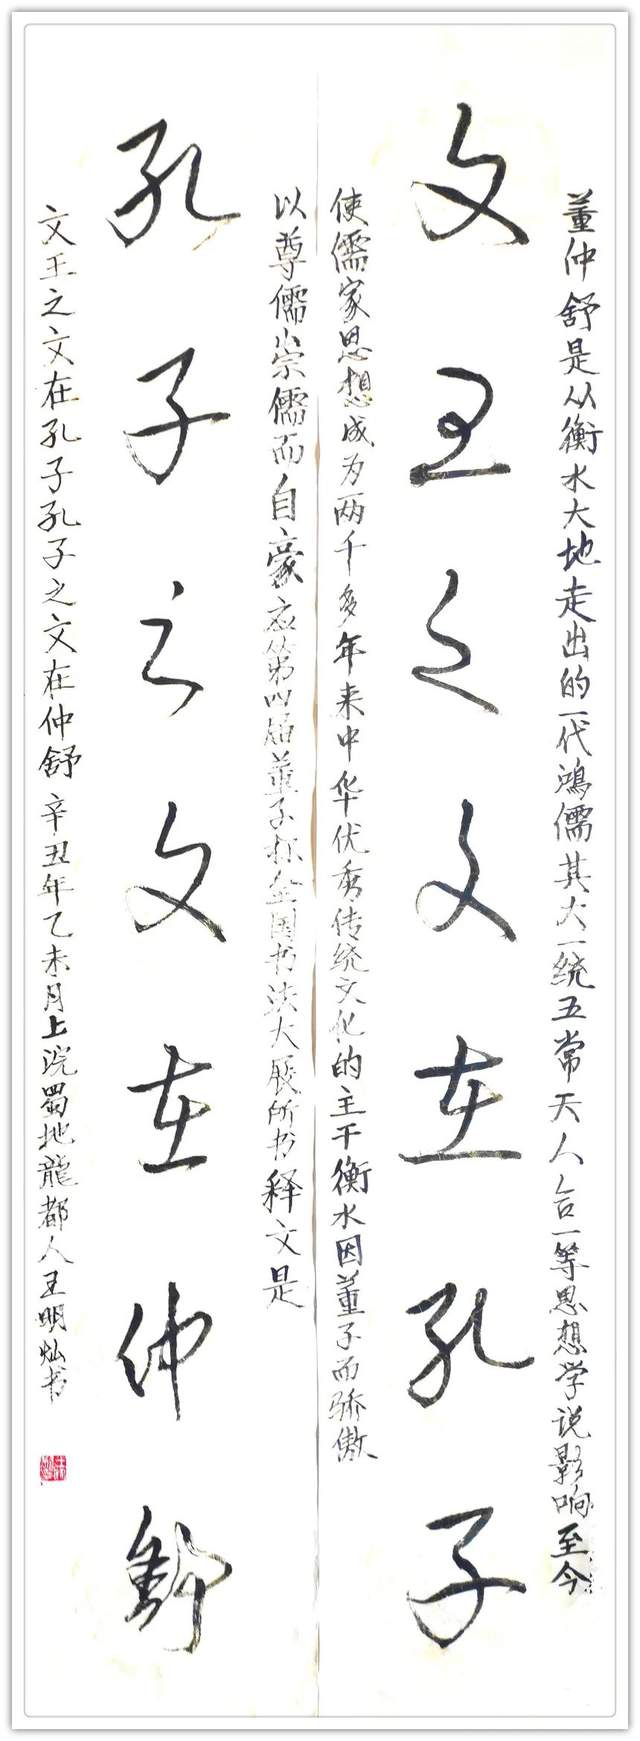 董仲舒是从衡水大地走出的一代鸿儒其大一统五常天人合一等思想学说影响至今
文王之文在孔子
使儒家思想成为两千多年来中华优秀传统文化的主干衡水因董子而骄傲
以尊儒崇儒而自豪应第四届董子杯全国书法大展所书释文是
孔子之文在仲舒
文王之文在孔子孔子之文在仲舒辛丑年乙未月上浣蜀地龍都人王明灿书